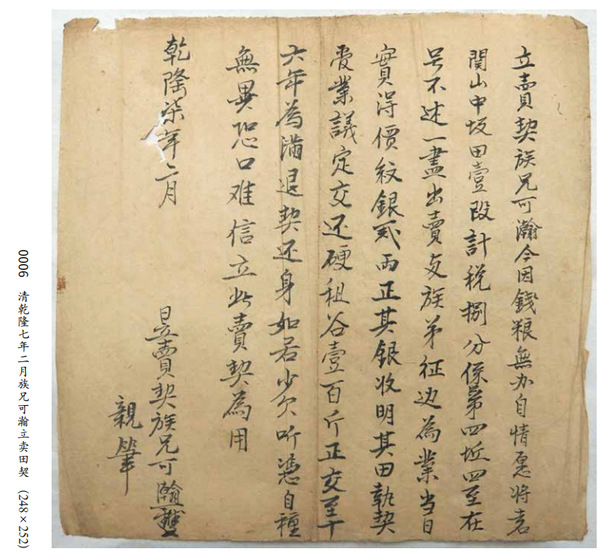 立賣契族兄可瀚今因錢粮無办自情愿将岩
関山中坂田壹段計税捌分係第四坵四至在
号不述一盡出賣与族弟征边為業當日
實得價紋銀貳両正其銀收明其田執契
受業議定交还硬租谷壹百斤正交至十
六年為滿退契还身如若少欠听憑自種
無異恐口难信立此賣契為用
乾隆柒年二月
立賣契族兄可瀚
親筆
0006 清乾隆七年二月族兄可瀚立卖田契 (248×252)